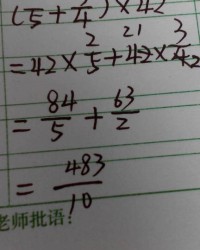 (2/5+3/4)×42
=42×2/5+42×3/4
=84/5+63/2
=483/10
老师批语: